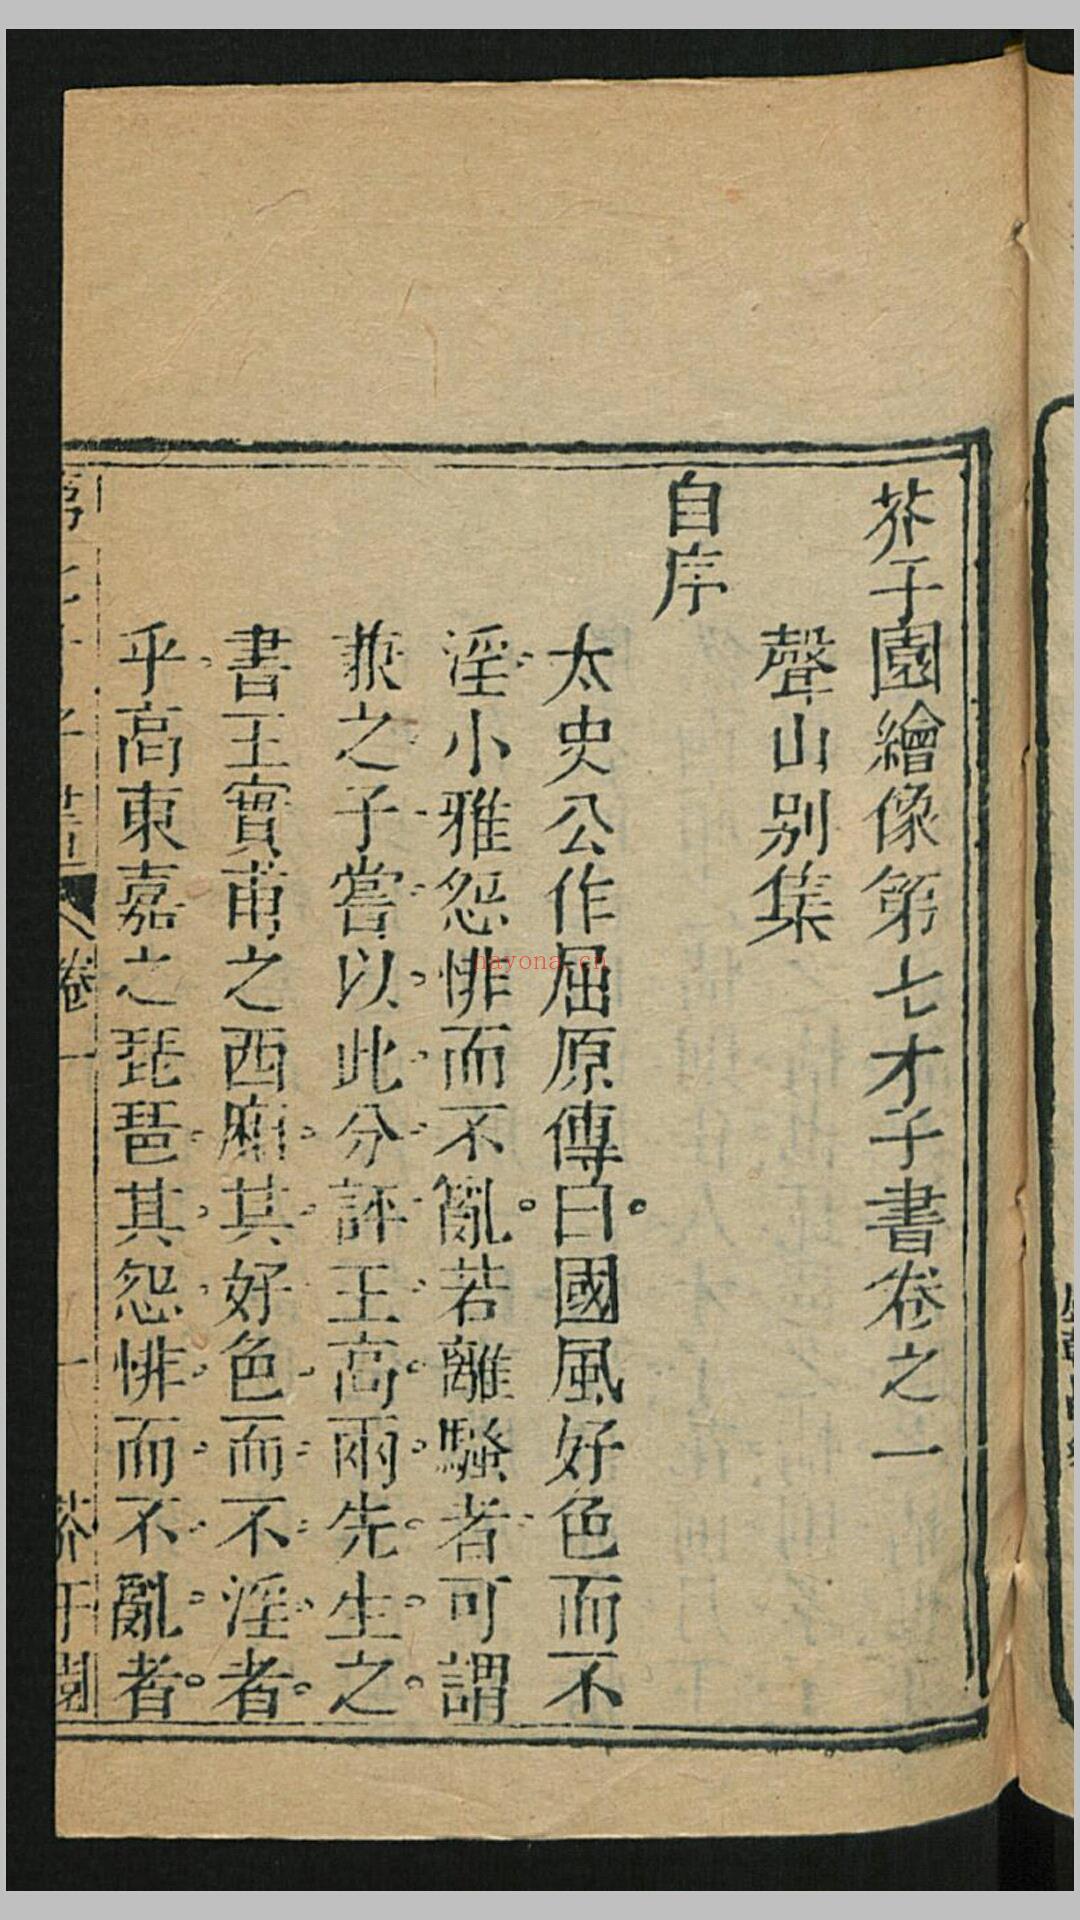 芥子園繪像第七才子書卷之一
聲山别集
自序
太史公作屈原傳曰國風好色而不
淫小雅怨悱而不亂若離騷者可謂
兼之予嘗以此分評王高兩先生之
書王實甫之西廂其好色而不淫者
乎高東嘉之琵琶其怨悱而不亂者
第七才子書 卷一 一 芥子園
nayona.cn